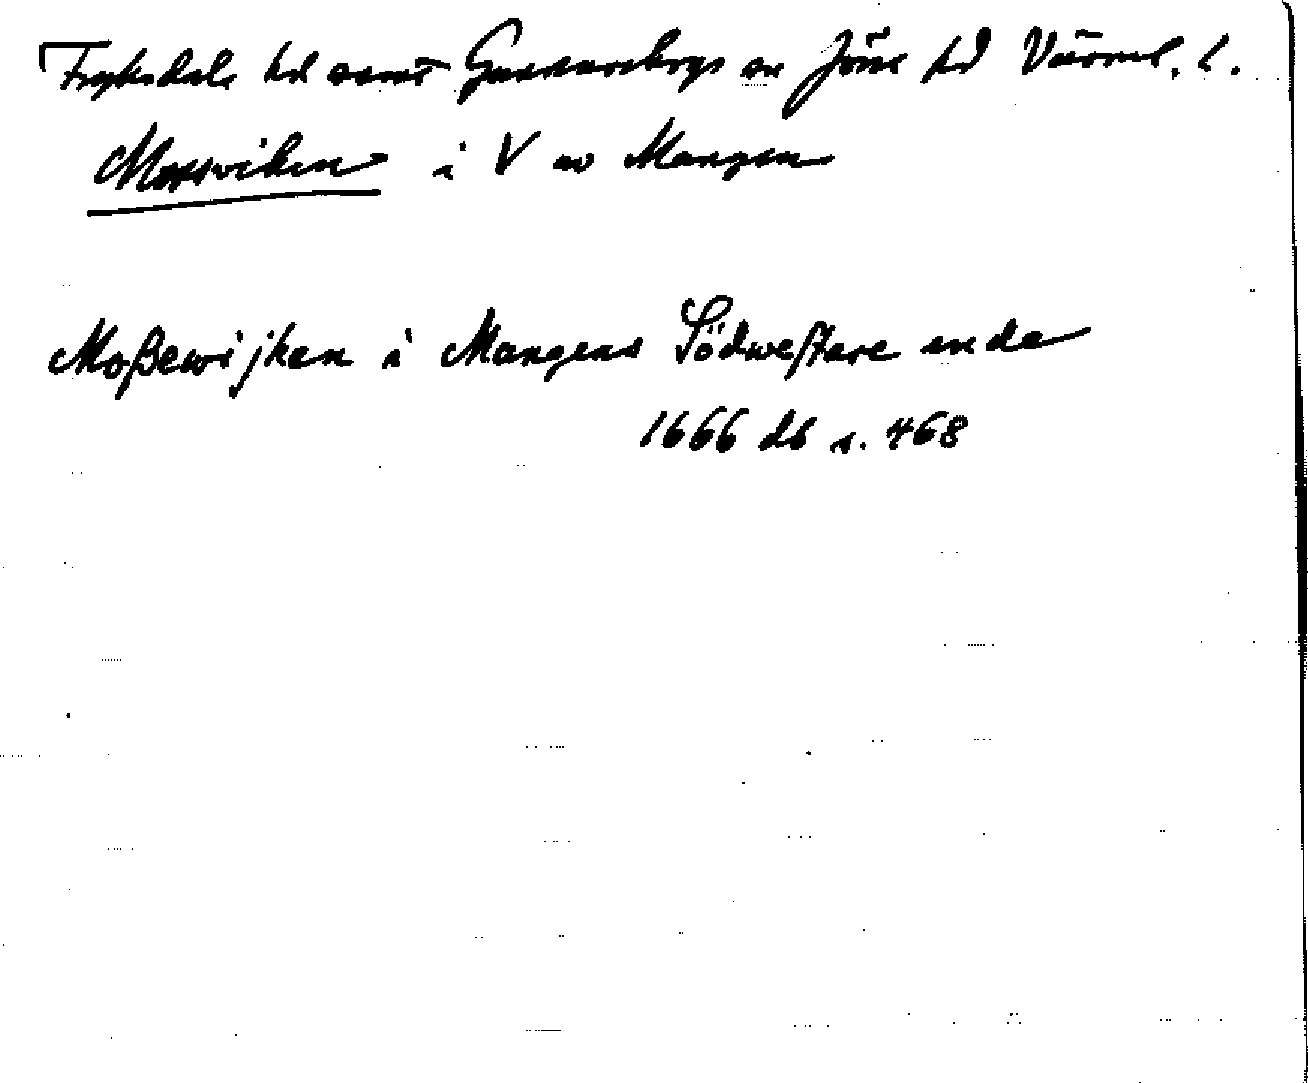 Fryksdals hd samt Gunnarskogs sn Jösse hd Värml. l.
Mossviken i V av Mangen
Moßewijken i Mangens Södwestare ende
1666 db s. 468